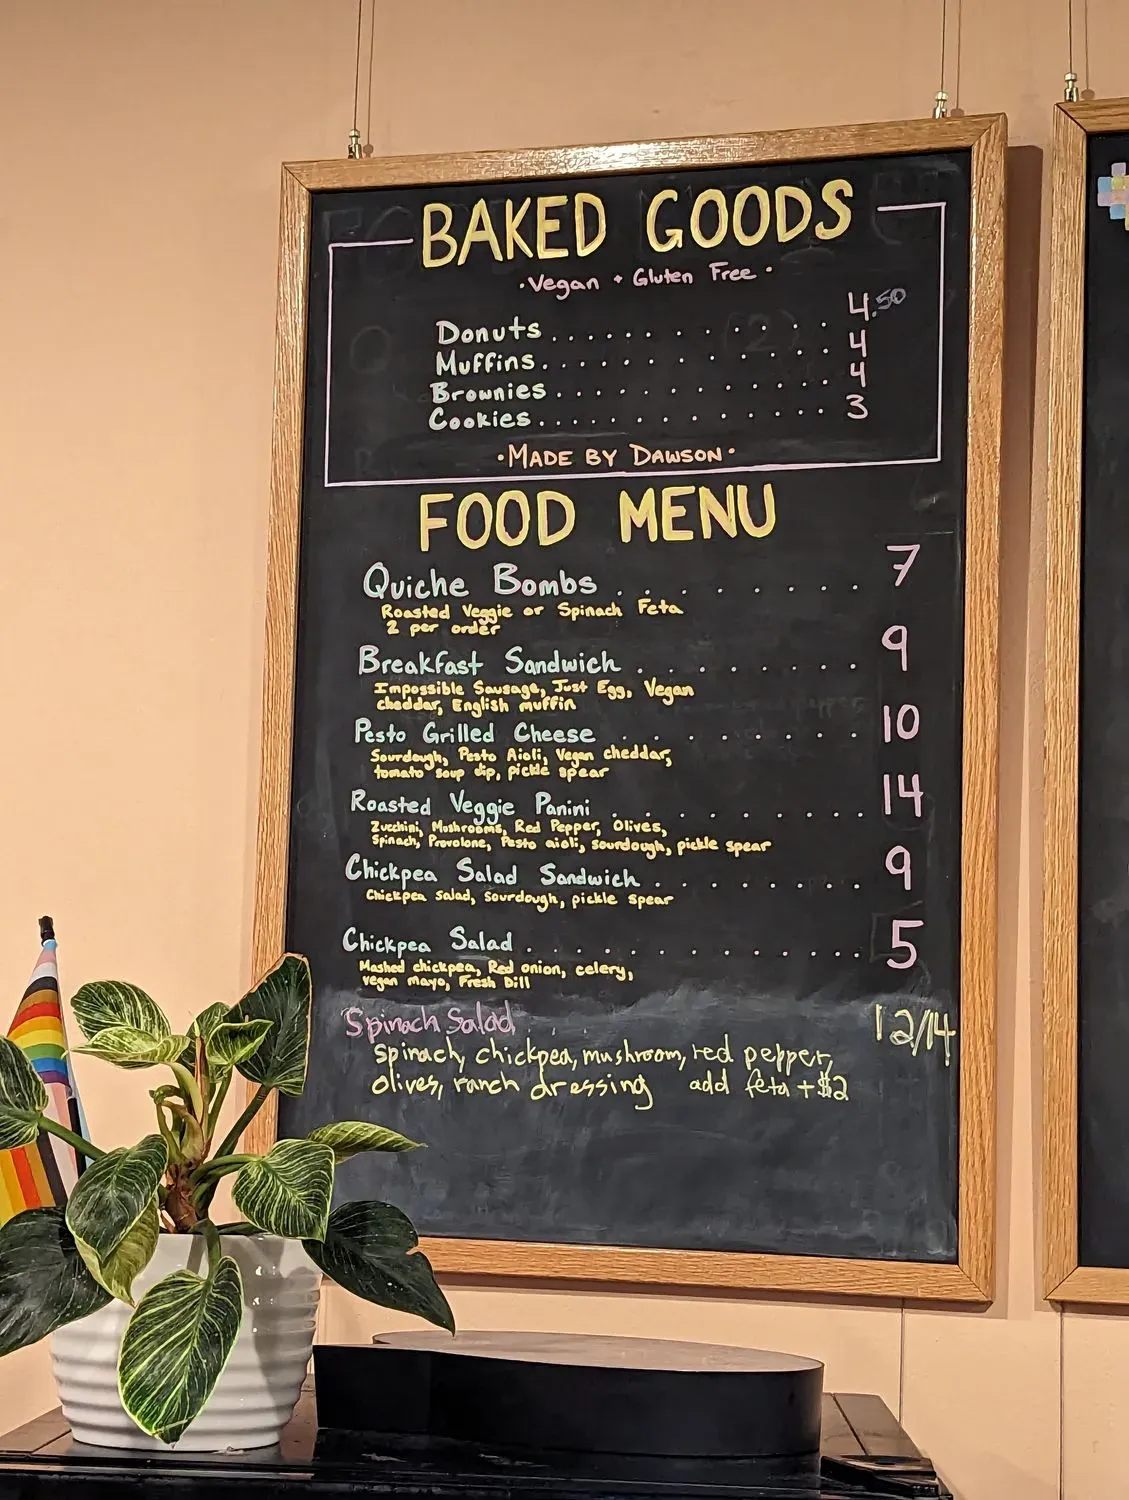 BAKED GOODS
·Vegan + Gluten Free·
Donuts . . . . . . . . . . . . 4.50
Muffins . . . . . . . . . . . . 4
Brownies . . . . . . . . . . . . 4
Cookies . . . . . . . . . . . . . 3
·MADE BY DAWSON·
FOOD MENU
Quiche Bombs . . . . . . . . . 7
Roasted Veggie or Spinach Feta
2 per order
Breakfast Sandwich . . . . . . . . . 9
Impossible Sausage, Just Egg, Vegan
cheddar, English muffin
Pesto Grilled Cheese . . . . . . . . . 10
Sourdough, Pesto Aioli, Vegan cheddar,
tomato soup dip, pickle spear
Roasted Veggie Panini . . . . . . . . . . 14
Zucchini, Mushrooms, Red Pepper, Olives,
Spinach, Provolone, Pesto aioli, sourdough, pickle spear
Chickpea Salad Sandwich . . . . . . . . . 9
Chickpea salad, sourdough, pickle spear
Chickpea Salad . . . . . . . . . . . . . . 5
Mashed chickpea, Red onion, celery,
vegan mayo, Fresh Dill
Spinach Salad 12/14
spinach, chickpea, mushroom, red pepper,
olives, ranch dressing add feta + $2